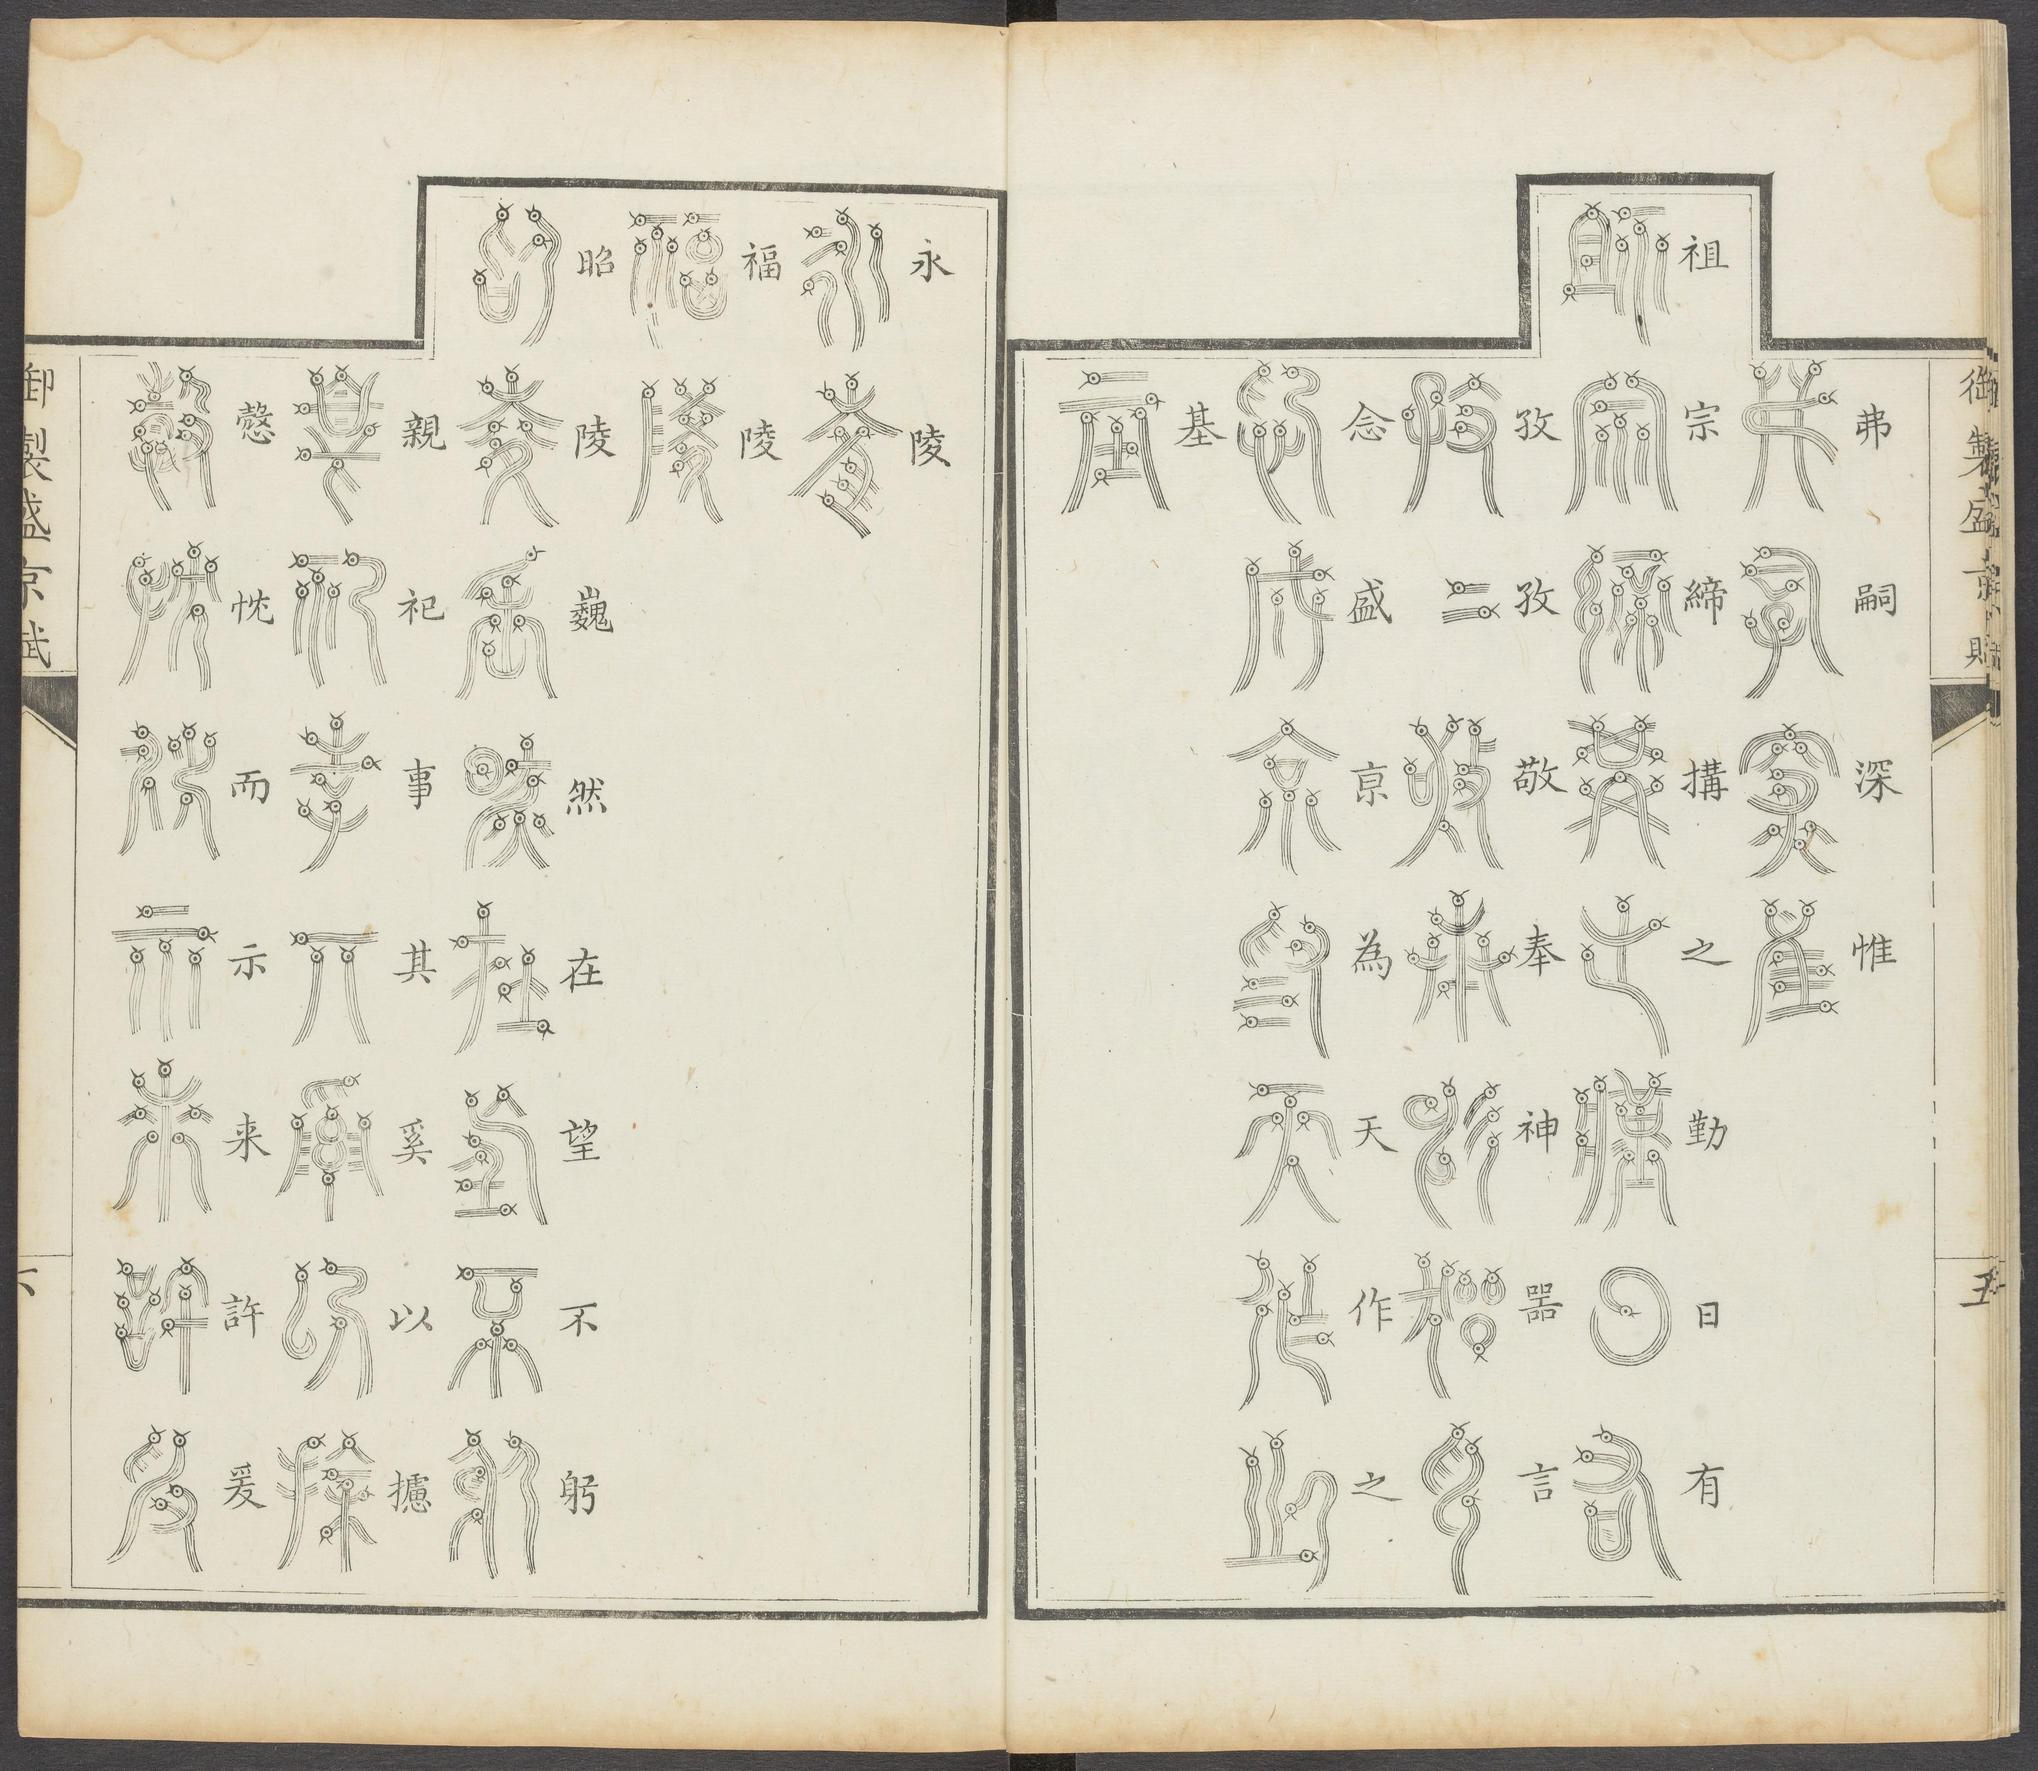 御製盛京賦
五
弗嗣深惟
祖宗締構之勤日有
孜孜敬奉神器言
念盛京為天作之
基
永陵
福陵
昭陵巍然在望不躬
親祀事其奚以攄
慤忱而示来許爰
御製盛京賦
六